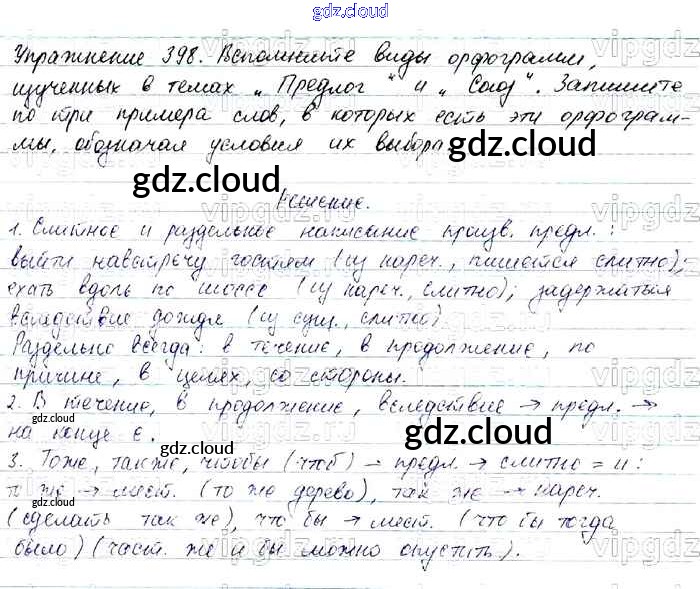 gdz.cloud
Упражнение 398. Вспомните виды орфограмм,
изученных в темах „Предлог" и „Союз". Запишите
по три примера слов, в которых есть эти орфограм-
мы, обозначая условия их выбора.
gdz.cloud gdz.cloud
Решение.
1. Слитное и раздельное написание произв. предл.:
выйти навстречу гостям (из нареч., пишется слитно);
ехать вдоль по шоссе (из нареч., слитно); задержаться
вследствие дождя (из сущ., слитно)
Раздельно всегда: в течение, в продолжение, по
причине, в целях, со стороны.
gdz.cloud
2. В течение, в продолжение, вследствие → предл. →
на конце е.
gdz.cloud gdz.cloud
3. Тоже, также, чтобы (чтоб) – предл. → слитно = и:
gdz.cloud
то же → мест. (то же дерево), так же → нареч.
(сделать так же), что бы → мест. (что бы тогда
gdz.cloud gdz.cloud
было) (част. же и бы можно опустить).